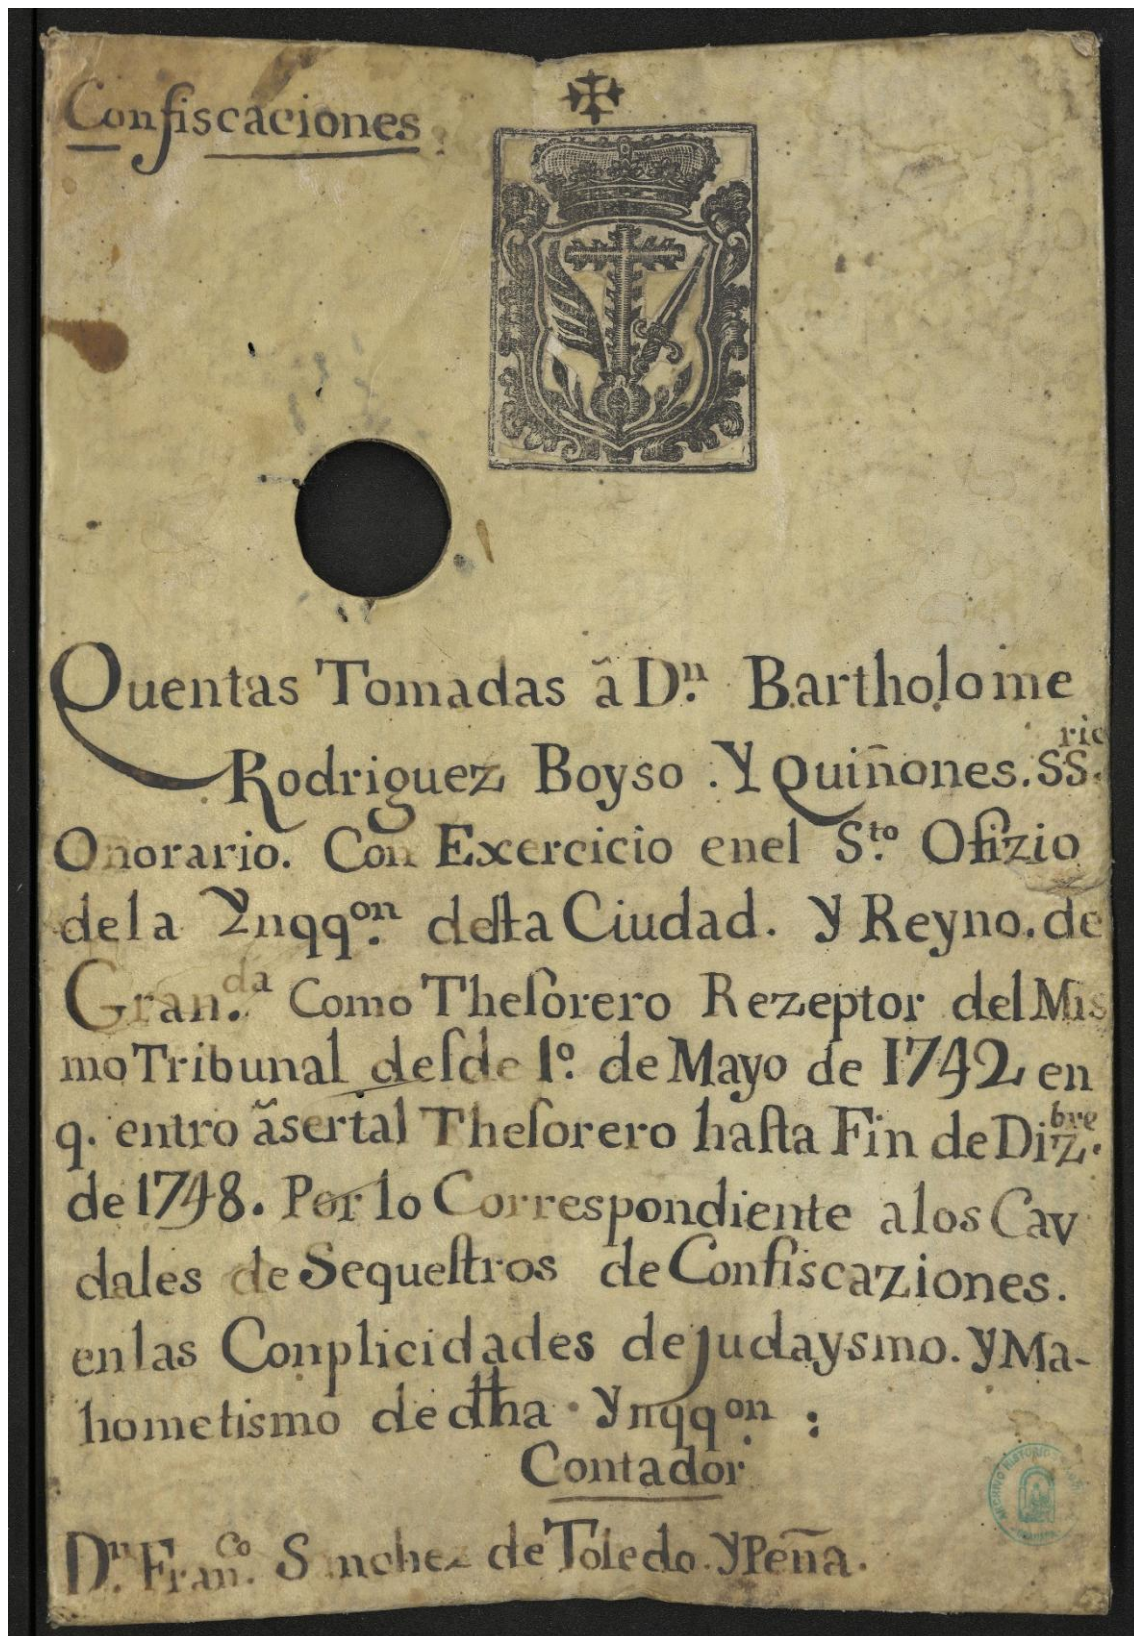 Confiscaciones
Quentas Tomadas ã Dn. Bartholome
Rodriguez Boyso . Y Quiñones. SS.rio
Onorario. Con Exercicio enel Sto. Ofizio
dela Ynqqon. desta Ciudad. Y Reyno. de
Gran.da Como Thesorero Rezeptor del Mis
mo Tribunal desde 1º. de Mayo de 1742 en
q. entro ãsertal Thesorero hasta Fin de Diz.bre
de 1748. Por lo Correspondiente alos Cav
dales de Sequestros de Confiscaziones.
enlas Conplicidades de Judaysmo. Y Ma-
hometismo de dha Ynqqon. :
Contador
Dn. Franco. Sanchez de Toledo. Y Peña.
ARCHIVO HISTORICO